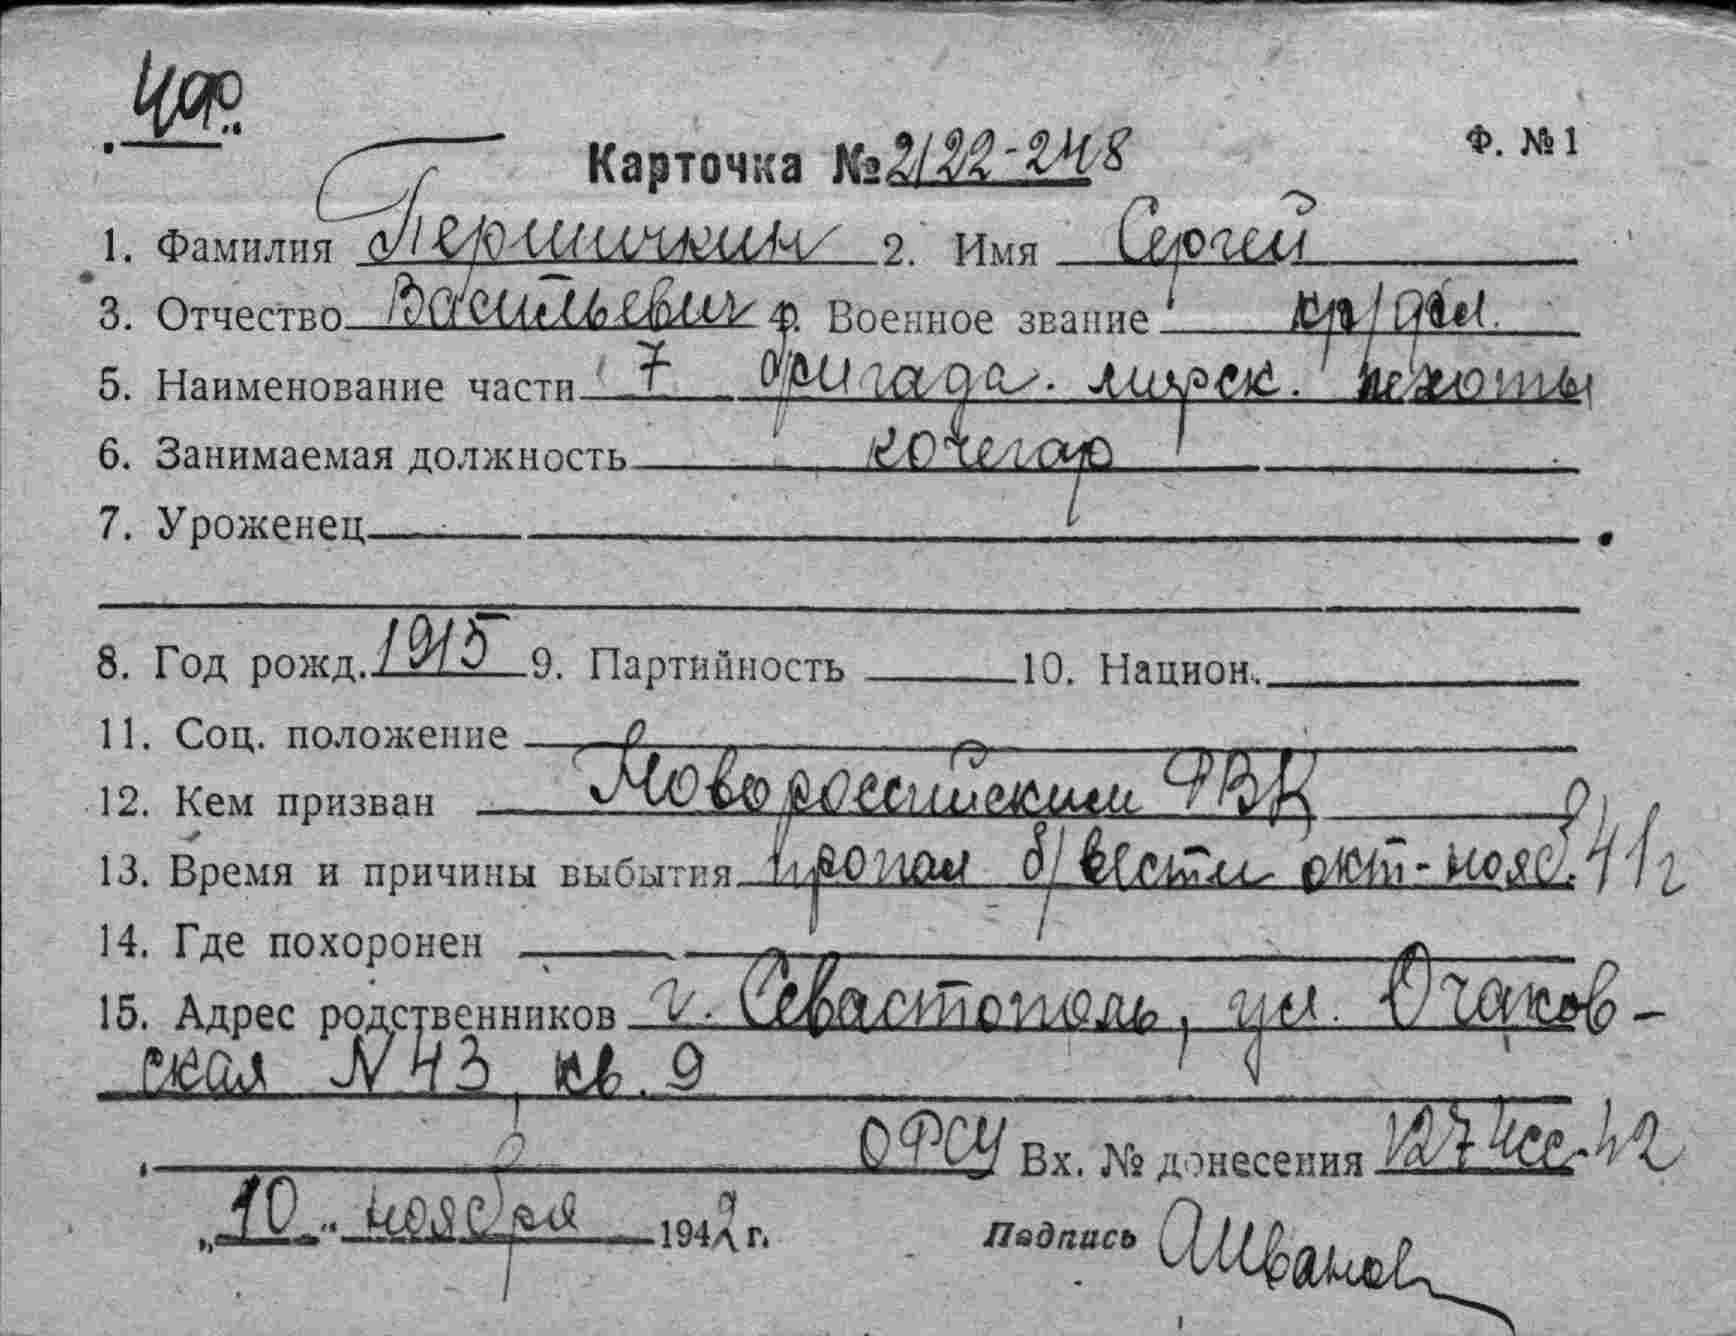 ЧФ
Ф. №1
Карточка № 2122-248
1. Фамилия Першичкин 2. Имя Сергей
3. Отчество Васильевич 4. Военное звание кр/фл.
5. Наименование части 7 бригада. морск. пехоты
6. Занимаемая должность кочегар
7. Уроженец
8. Год рожд. 1915 9. Партийность 10. Национ.
11. Соц. положение
12. Кем призван Новороссийским РВК
13. Время и причины выбытия пропал б/вести окт-нояб. 41г
14. Где похоронен
15. Адрес родственников г. Севастополь, ул. Очаков-
ская N 43, кв. 9
ОРСУ Вх. № донесения 1274сс-42
„10" ноября 1942 г. Подпись АИванов